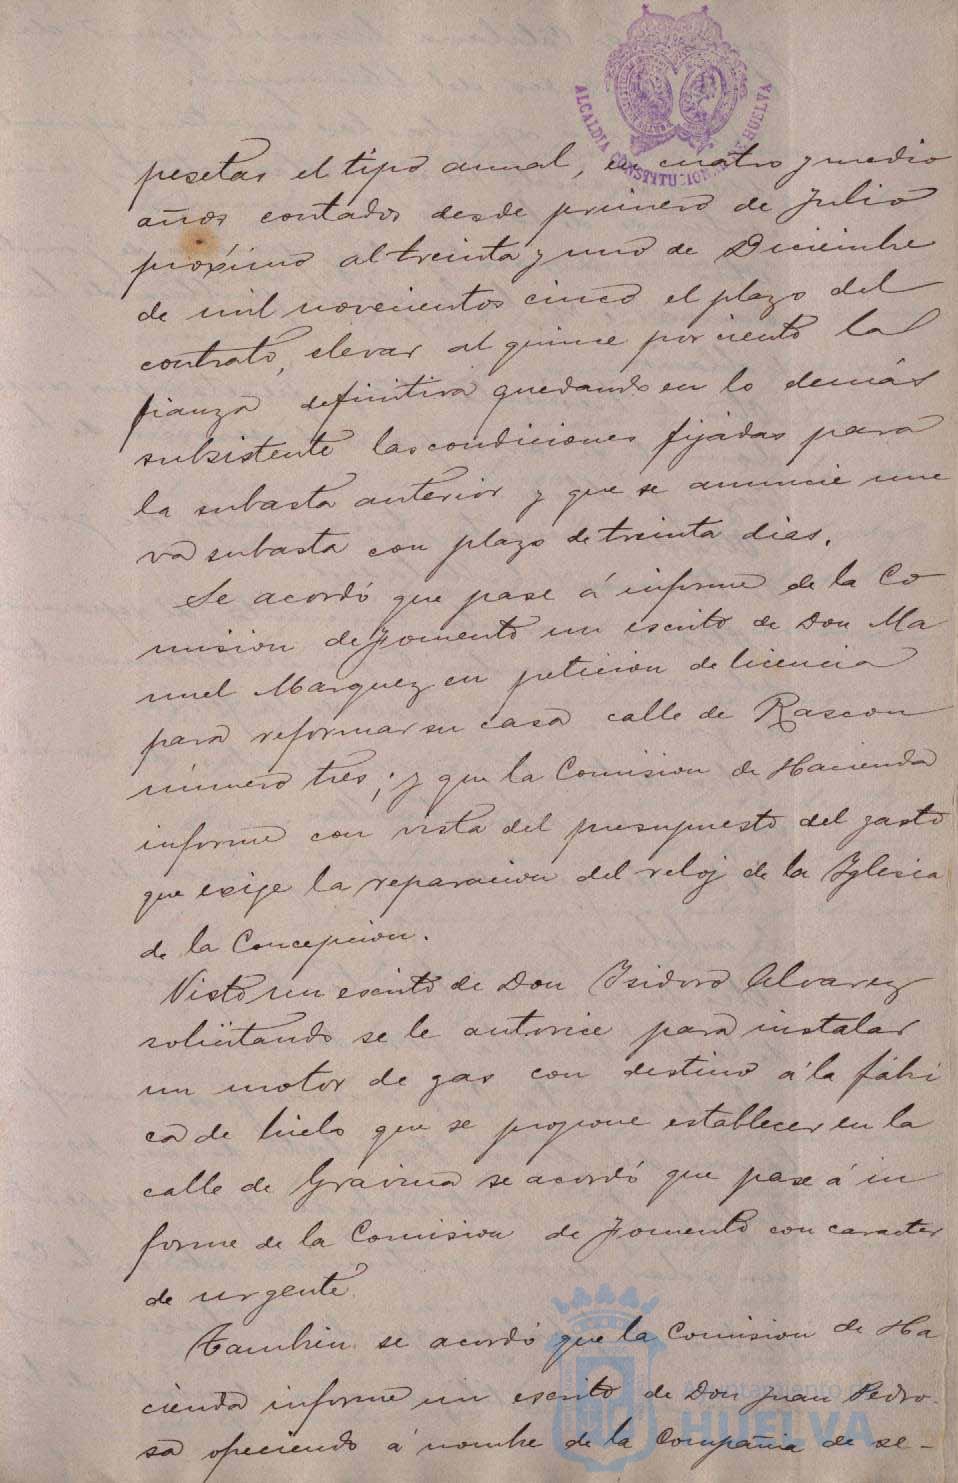 ALCALDIA CONSTITUCIONAL DE HUELVA
pesetas el tipo anual, en cuatro y medio
años contados desde primero de Julio
próximo al treinta y uno de Diciembre
de mil novecientos cinco el plazo del
contrato, elevar al quince por ciento la
fianza definitiva quedando en lo demás
subsistente las condiciones fijadas para
la subasta anterior y que se anuncie nue
va subasta con plazo de treinta dias.
Se acordó que pase á informe de la Co
mision de Fomento un escrito de Don Ma
nuel Marquez en peticion de licencia
para reformar su casa calle de Rascon
número tres; y que la Comision de Hacienda
informe con vista del presupuesto del gasto
que exige la reparacion del reloj de la Iglesia
de la Concepcion.
Visto un escrito de Don Isidoro Alvarez
solicitando se le autorice para instalar
un motor de gas con destino á la fábri
ca de hielo que se propone establecer en la
calle de Gravina se acordó que pase á in
forme de la Comision de Fomento con caracter
de urgente.
Tambien se acordó que la Comision de Ha
cienda informe un escrito de Don Juan Pedro-
sa ofreciendo á nombre de la Compañia de se-
Ayuntamiento de
HUELVA